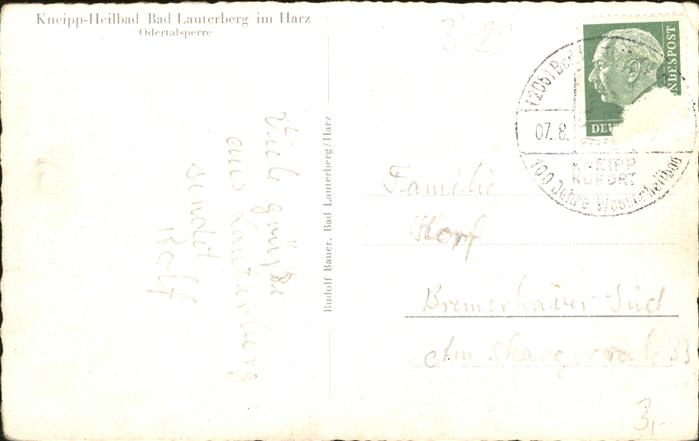 Kneipp-Heilbad Bad Lauterberg im Harz
Odertalsperre
3-29
DEU
NDESPOST
(20b) Bad
07. 8.
KNEIPP
KURORT
100 Jahre Wasserheilbad
Viele Grüße
aus Lauterberg
sendet
Rolf
Rudolf Bauer, Bad Lauterberg/Harz
Familie
Korf
Bremerhaven-Süd
Am Skagerrak 33
3,-